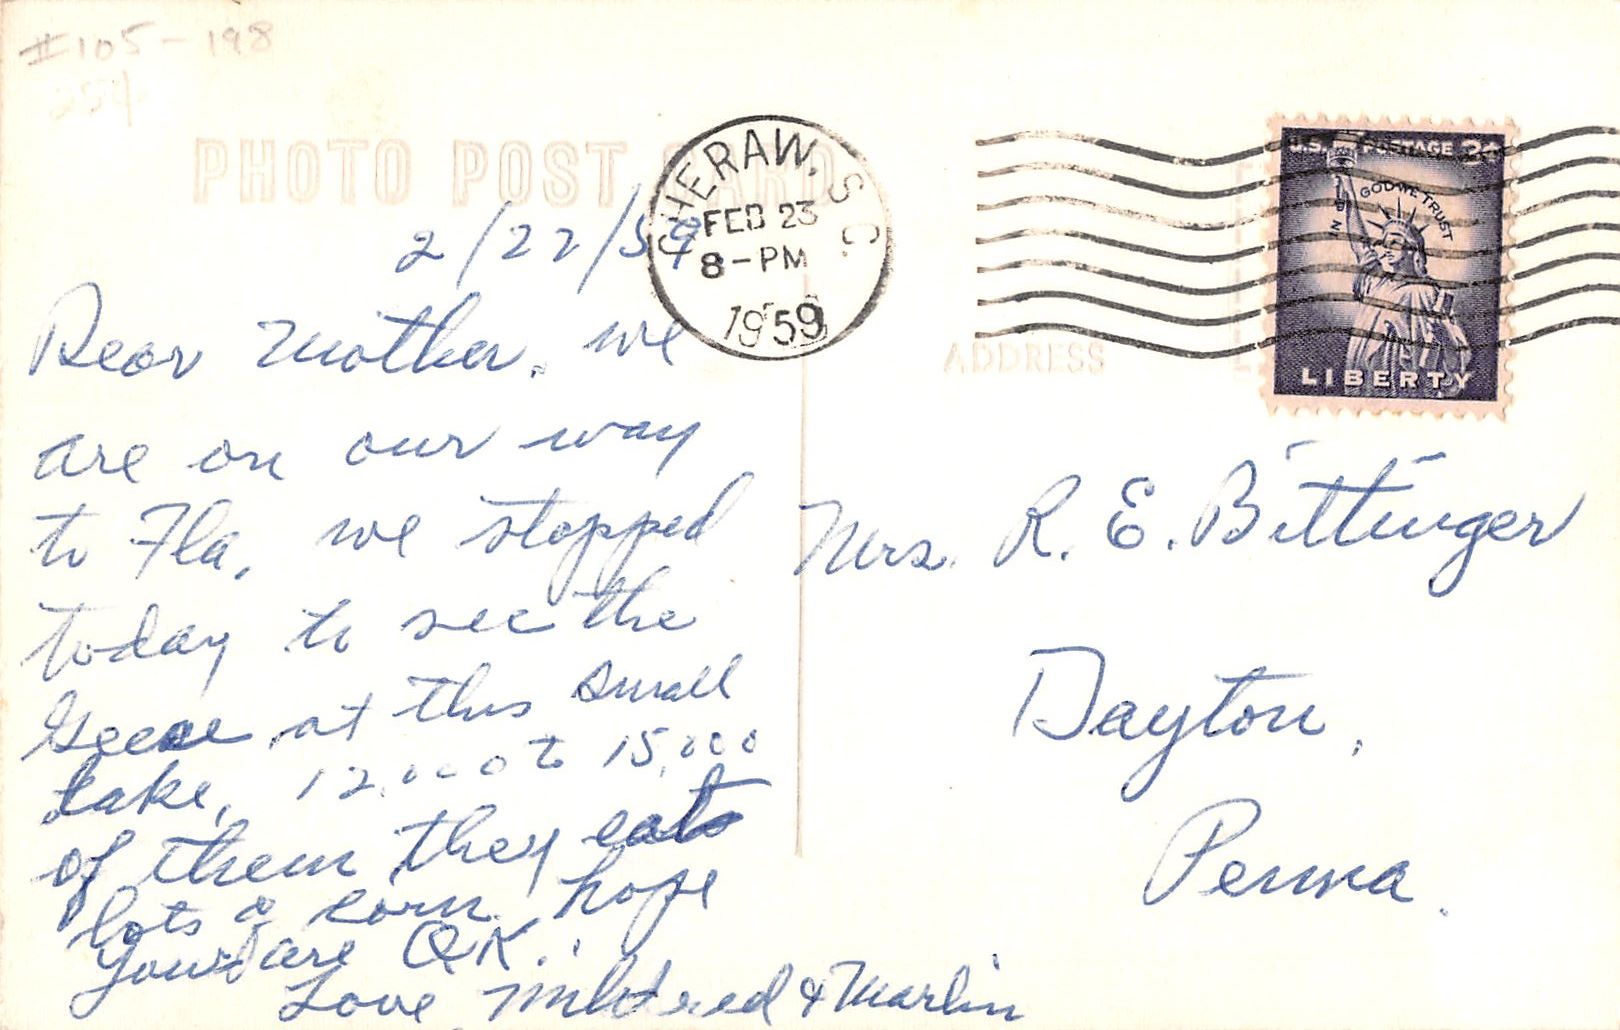 #105-198
25¢
PHOTO POST CARD
CHERAW, S.C.
FEB 23
8-PM
1959
U.S. POSTAGE 3¢
IN GOD WE TRUST
LIBERTY
ADDRESS
2/22/59
Dear Mother, we
are on our way
to Fla, we stopped
today to see the
Geese at this small
Lake, 12,000 to 15,000
of them they eats
lots of corn, hope
you are OK.
Love, Mildred & Marlin
Mrs. R. E. Bittinger
Dayton,
Penna.